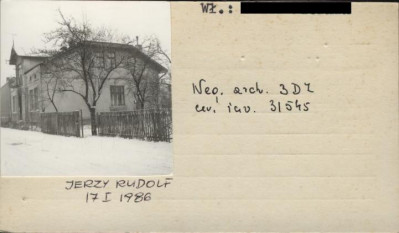 Wł.:
Neg. arch. 3DZ
ew. inv. 31545
JERZY RUDOLF
17 I 1986